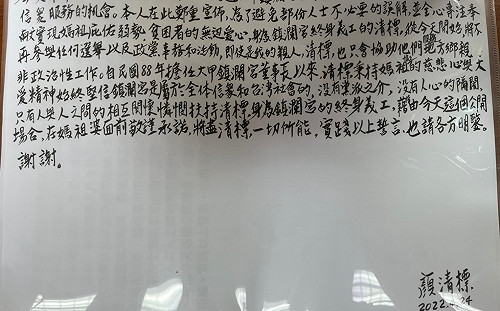 信從服務的機會。本人在此鄭重宣佈,為了避免部份人士不必要的誤解,並全心專注奉
獻實現媽祖庇佑弱勢、貧困者的無迎愛心,身為鎮瀾宮終身義工的清標,從今天開始,將不
再參與任何選舉以及政黨事務和活動,即使是我的親人,清標,也只會協助他們地方鄉親
非政治性工作。自民國88年擔任大甲鎮瀾宮董事長以來,清標秉持媽祖的慈悲心與大
愛精神始終堅信鎮瀾宮是屬於全体信眾和台灣社會的,沒有黨派之介,沒有人心的隔閡,
只有人與人之間的相互關懷憐憫扶持清標身為鎮瀾宮的終身義工,藉由今天這個公開
場合,在媽祖婆面前敬謹承諾,將盡清標一切所能,實踐以上誓言,也請各方明鑒。
謝謝。
顏清標
2022.4.24